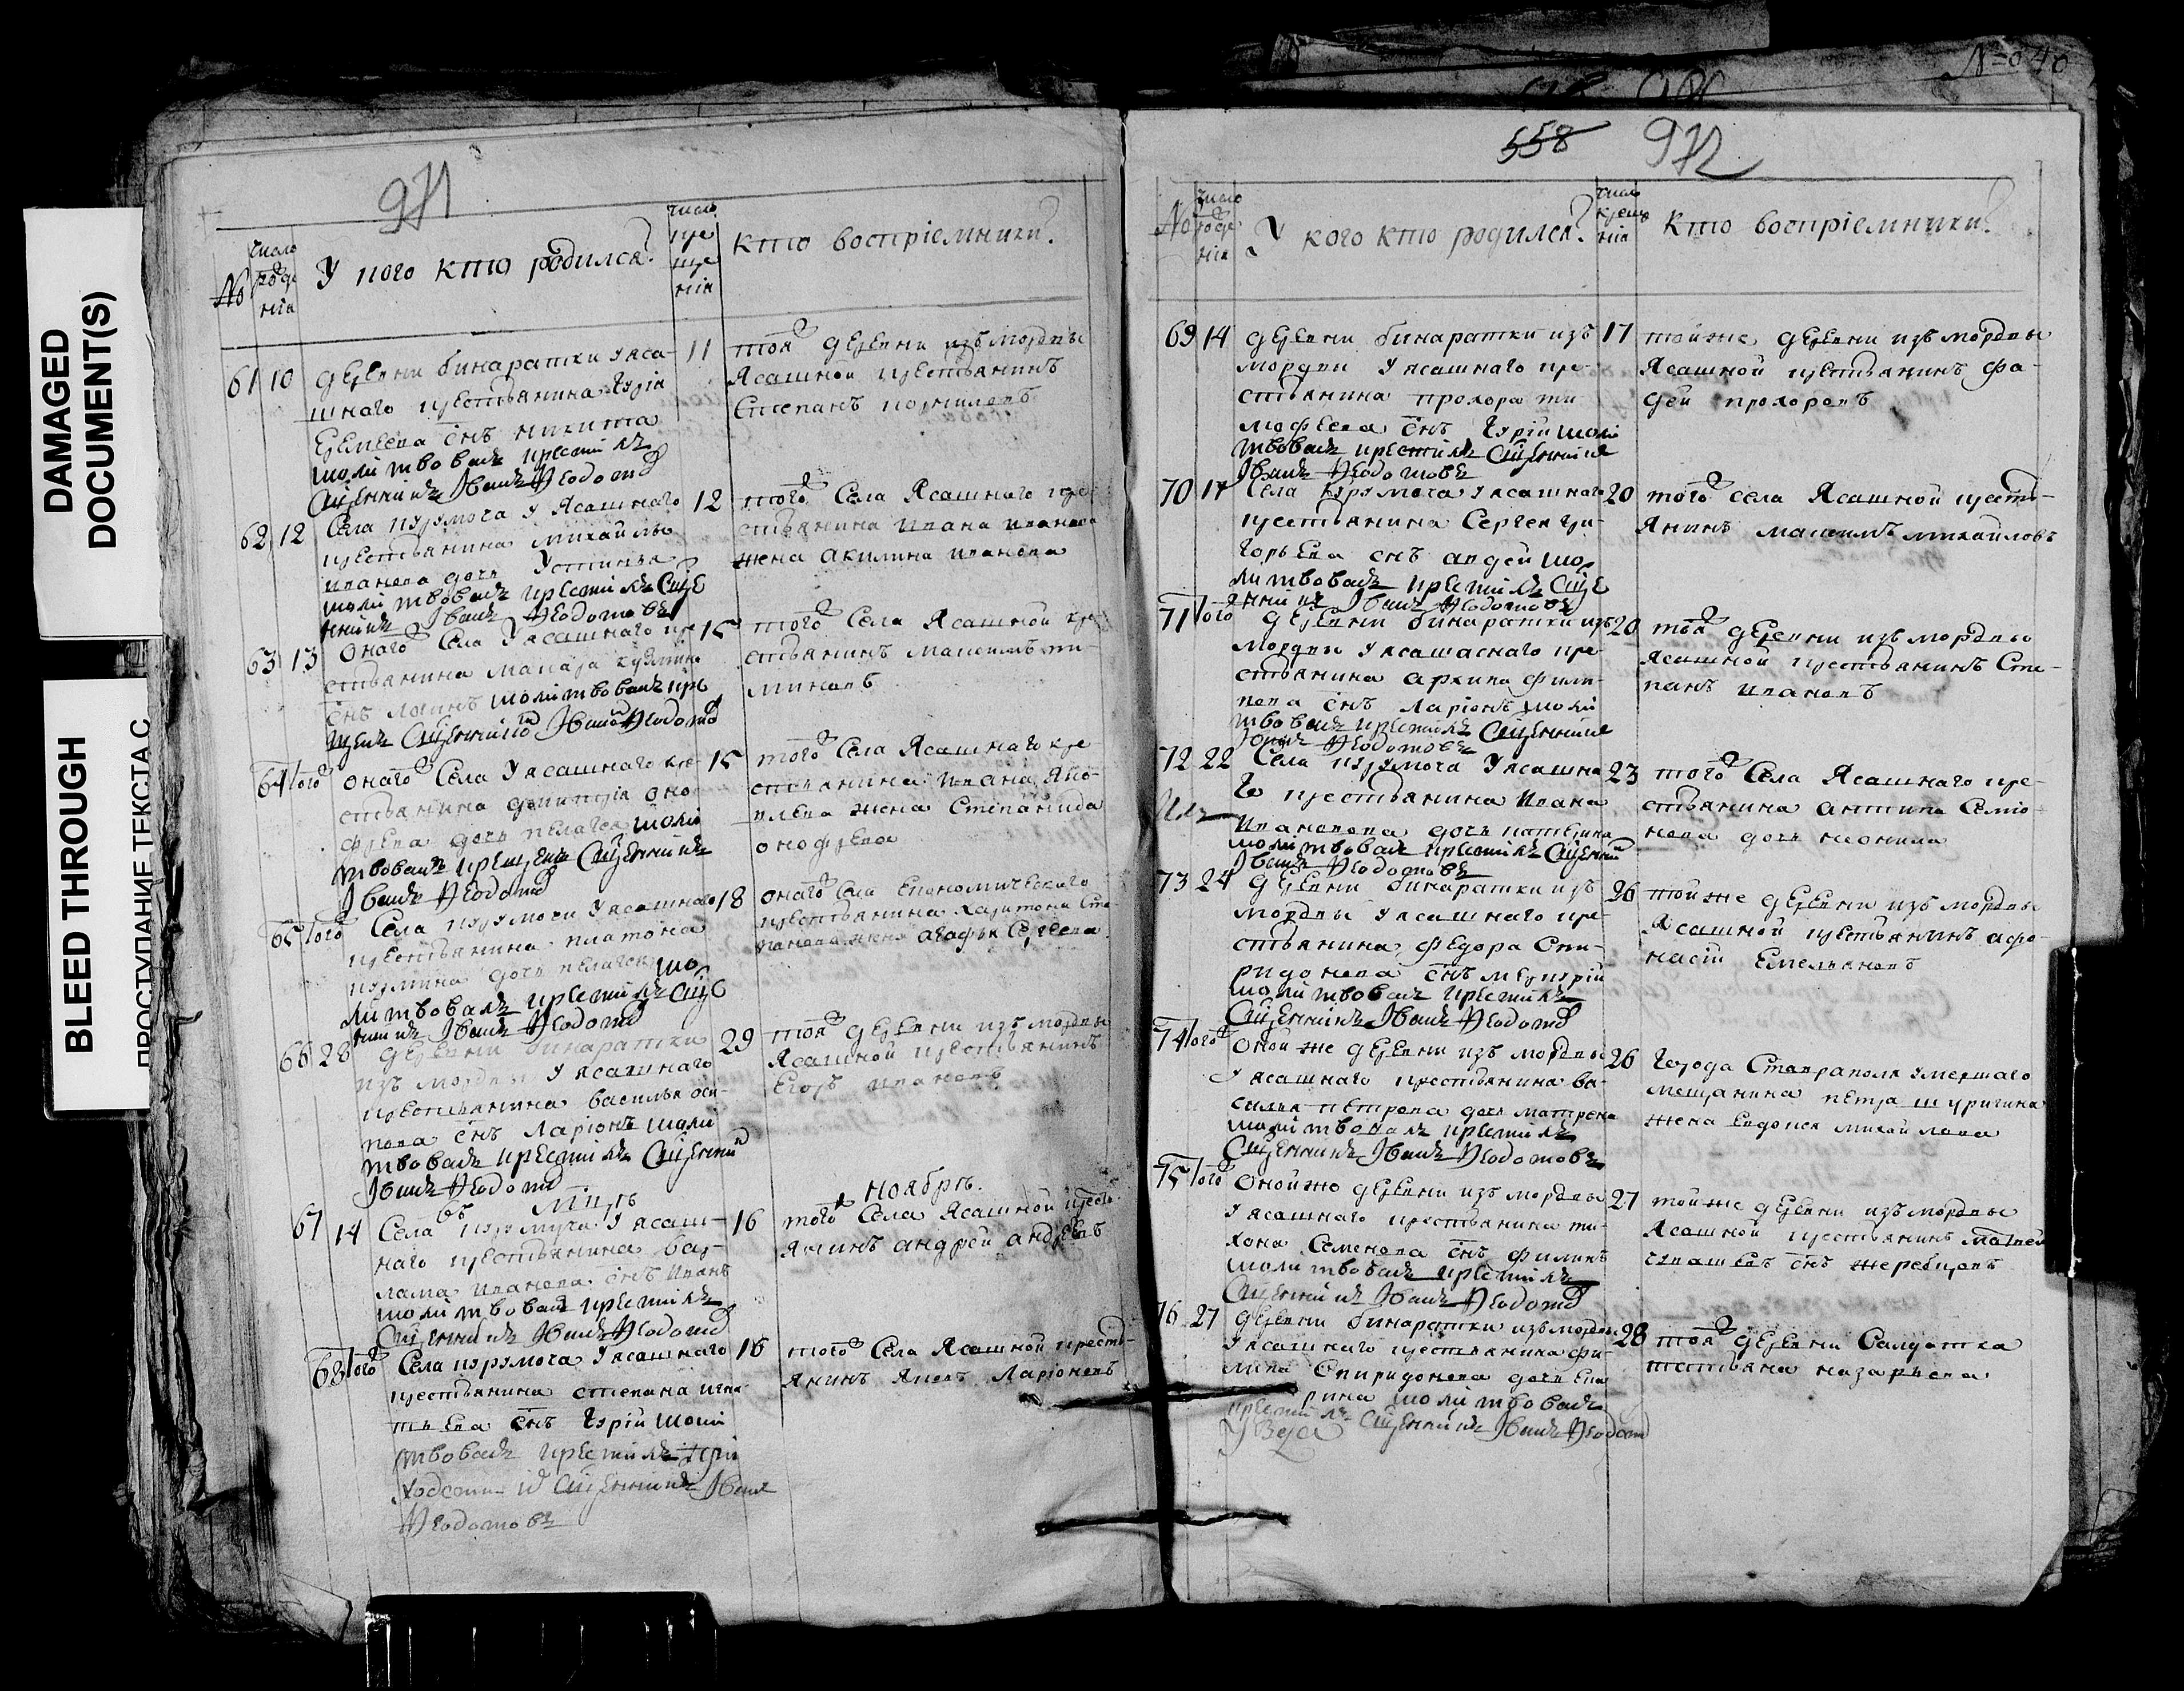 DAMAGED
DOCUMENT(S)
BLEED THROUGH
ПРОСТУПАНИЕ ТЕКСТА С
971
№
число
рожде
нія
У кого кто родился?
число
кре
ще
нія
кто воспріемники?
61 10
деревни бинаратки у яса-
шнаго крестьянина Гурія
Еремеева снъ никита
молитвовалъ крестилъ
Священникъ Іванъ Ѳедото
11
тоя деревни изъ мордвы
Ясашной крестьянинъ
Степанъ корниловъ
62 12
Села курумоча у Ясашнаго
крестьянина михайлы
иванова дочь Устинья
молитвовалъ крестилъ Свще
нникъ Іванъ Ѳедотовъ
12
того Села Ясашнаго кре
стьянина Ивана иванова
жена акилина иванова
63 13
онаго Села У ясашнаго кре
стьянина макара кузмина
снъ логинъ молитвовалъ кре
Священникъ Іванъ Ѳедото
15
того Села Ясашной кре
стьянинъ максимъ ти-
64 того
онаго Села У ясашнаго кре
стьянина дмитрія оно
фрева дочь пелагея моли
твовалъ Священникъ
Іванъ Ѳедото
15
того Села Ясашнаго кре
стьянина Ивана яко-
влева жена Степанида
онофрева
65 того
Села курумочи У ясашнаго
крестьянина платона
кузмина дочь пелагея мо
литвовалъ крестилъ Свще
нникъ Іванъ Ѳедото
18
онаго Села Економическаго
крестьянина харитона Сте
панова жена агафья Сергеева
66 28
деревни бинаратки
изъ мордвы У ясашнаго
крестьянина василья оси-
пова снъ Ларіонъ моли
твовалъ крестилъ Священни
Іванъ Ѳедото
29
тоя деревни изъ мордвы
Ясашной крестьянинъ
Егоръ ивановъ
въ Мцъ ноябрь.
67 14
Села курумуча У ясаш-
наго крестьянина вар-
лама Иванова снъ Иванъ
молитвовалъ крестилъ
Священникъ Іванъ Ѳедото
16
того Села Ясашной кресть
янинъ андрей андреевъ
68 того
Села курумоча У ясашнаго
крестьянина степана игна
тьева снъ Гурій моли
твовалъ крестилъ
Священникъ Іванъ
Ѳедотовъ
16
того Села Ясашной кресть-
янинъ Яковъ Ларіоновъ
№ 040
558 972
№
число
рожде
нія
У кого кто родился?
число
креще
нія
Кто воспріемники?
69 14
деревни бинаратки изъ
мордвы У ясашнаго кре-
стьянина прохора ти-
мофеева снъ Гурій моли
твовалъ крестилъ Священникъ
Іванъ Ѳедотовъ
17
тойже деревни изъ мордвы
Ясашной крестьянинъ фа-
дей прохоровъ
70 17
Села курумоча У ясашнаго
крестьянина Сергея гри-
горьева снъ авдей мо
литвовалъ крестилъ Свще
нникъ Іванъ Ѳедотовъ
20
того села Ясашной кресть-
янинъ максимъ михайловъ
71 того
деревни бинаратки изъ
мордвы У ясашаснаго кре
стьянина архипа фили-
пова снъ Ларіонъ моли
твовалъ крестилъ Священник
Іоанъ Ѳедотовъ
20
тоя деревни изъ мордвы
Ясашной крестьянинъ Сте-
панъ ивановъ
72 22
Села курумоча У ясашна
го крестьянина Ивана
Иванова дочь катерина
молитвовалъ крестилъ Священни
Іванъ Ѳедотовъ
23
того Села Ясашнаго кре-
стьянина антипа Семіо-
нова дочь неонила
73 24
деревни бинаратки изъ
мордвы У ясашнаго кре-
стьянина федора Спи-
ридонова снъ меркурій
молитвовалъ крестилъ
Священникъ Іванъ Ѳедото
26
тойже деревни изъ мордвы
Ясашной крестьянинъ афо-
насій Емельяновъ
74 того
Онойже деревни изъ мордвы
У ясашнаго крестьянина ва-
силья петрова дочь матрена
молитвовалъ крестилъ
Священникъ Іванъ Ѳедотовъ
26
города Ставраполя умершаго
мещанина петра шуригина
жена Евдокея михайлова
75 того
Онойже деревни изъ мордвы
У ясашнаго крестьянина ти-
хона Семенова снъ филипъ
молитвовалъ крестилъ
Священникъ Іванъ Ѳедото
27
тойже деревни изъ мордвы
Ясашной крестьянинъ матвей
снъ жеребцовъ
76 27
деревни бинаратки изъ мордвы
У ясашнаго крестьянина фи-
Спиридонова дочь Ека
рина молитвовалъ
крестилъ Священникъ Іванъ Ѳедото
28
тоя деревни Салдатка
назарьева